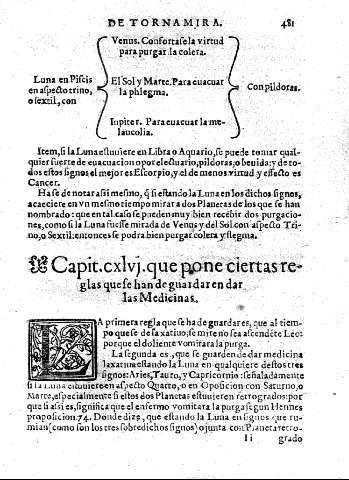 DE TORNAMIRA. 481
Venus. Confortase la virtud
para purgar la colera.
Luna en Piscis
en aspecto trino,
o sextil, con
El Sol y Marte. Para euacuar
la phlegma.
Con pildoras.
Iupiter. Para euacuar la me-
lancolia.
Item, si la Luna estuuiere en Libra o Aquario, se puede tomar qual-
quier suerte de euacuacion o por electuario, pildoras, o beuida: y de to-
dos estos signos, el mejor es Escorpio, y el de menos virtud y effecto es
Cancer.
Hase de notar assi mesmo, q̃ si estando la Luna en los dichos signos,
acaeciere en vn mesmo tiempo mirar a dos Planetas de los que se han
nombrado: que en tal caso se pueden muy bien recebir dos purgacio-
nes, como si la Luna fuesse mirada de Venus y del Sol con aspecto Tri-
no, o Sextil: entonces se podra bien purgar colera y flegma.
Capit. cxlvj. que pone ciertas re-
glas que se han de guardar en dar
las Medicinas.
LA primera regla que se ha de guardar es, que al tiem-
po que se de la xatiuo, se mire no sea ascendẽte Leo:
porque el doliente vomitara la purga.
La segunda es, que se guarden de dar medicina
laxatiua estando la Luna en qualquiere destos tres
signos: Aries, Tauro, y Capricornio: señaladamente
si la Luna estuuiere en aspecto Quarto, o en Oposicion con Saturno, o
Marte, especialmente si estos dos Planetas estuuieren retrogrados: por
que si assi es, significa que el enfermo vomitara la purga segun Hermes
proposicion. 74. Donde dize, que estando la Luna en signos que ru-
mian (como son los tres sobredichos signos) o junta con Planeta retro-
Ii grado